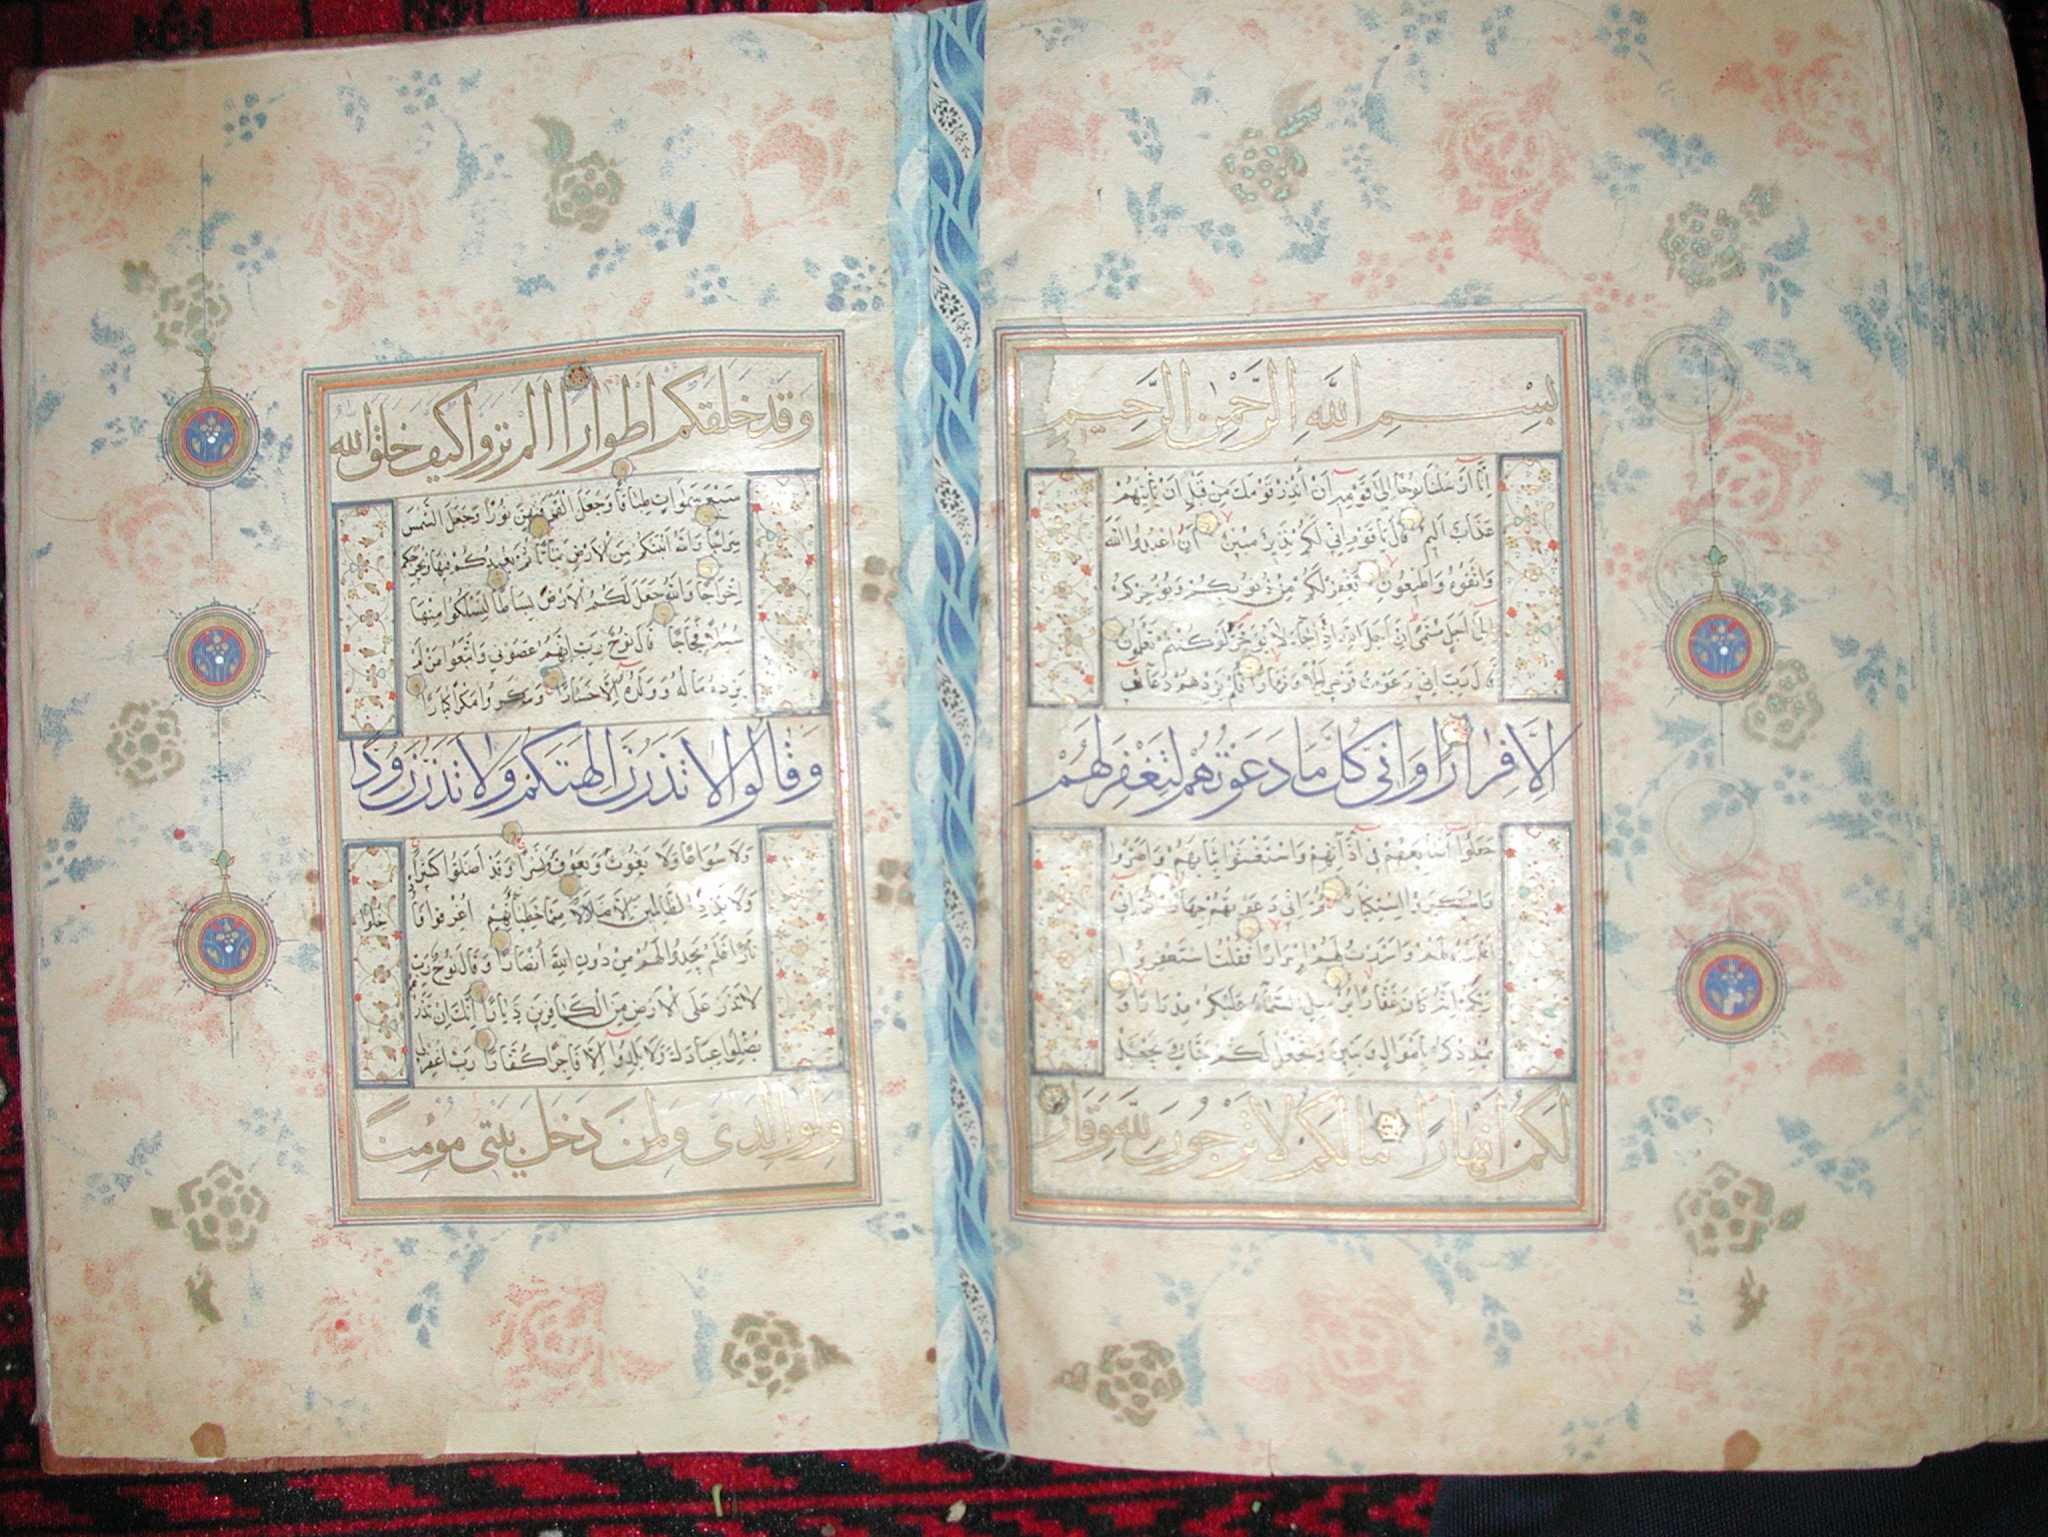 بِسْمِ اللَّهِ الرَّحْمٰنِ الرَّحِيمِ
اِنَّا اَرْسَلْنَا نُوحًا اِلٰى قَوْمِهِ اَنْ اَنْذِرْ قَوْمَكَ مِنْ قَبْلِ اَنْ يَأْتِيَهُمْ
عَذَابٌ اَلِيمٌ قَالَ يَا قَوْمِ اِنِّي لَكُمْ نَذِيرٌ مُبِينٌ اَنِ اعْبُدُوا اللَّهَ
وَاتَّقُوهُ وَاَطِيعُونِ يَغْفِرْ لَكُمْ مِنْ ذُنُوبِكُمْ وَيُؤَخِّرْكُمْ
اِلٰى اَجَلٍ مُسَمًّى اِنَّ اَجَلَ اللَّهِ اِذَا جَاءَ لَا يُؤَخَّرُ لَوْ كُنْتُمْ تَعْلَمُونَ
قَالَ رَبِّ اِنِّي دَعَوْتُ قَوْمِي لَيْلًا وَنَهَارًا فَلَمْ يَزِدْهُمْ دُعَائِي
اِلَّا فِرَارًا وَاِنِّي كُلَّمَا دَعَوْتُهُمْ لِتَغْفِرَ لَهُمْ
جَعَلُوا اَصَابِعَهُمْ فِي اٰذَانِهِمْ وَاسْتَغْشَوْا ثِيَابَهُمْ وَاَصَرُّوا
وَاسْتَكْبَرُوا اسْتِكْبَارًا ثُمَّ اِنِّي دَعَوْتُهُمْ جِهَارًا ثُمَّ اِنِّي
اَعْلَنْتُ لَهُمْ وَاَسْرَرْتُ لَهُمْ اِسْرَارًا فَقُلْتُ اسْتَغْفِرُوا
رَبَّكُمْ اِنَّهُ كَانَ غَفَّارًا يُرْسِلِ السَّمَاءَ عَلَيْكُمْ مِدْرَارًا وَ
يُمْدِدْكُمْ بِاَمْوَالٍ وَبَنِينَ وَيَجْعَلْ لَكُمْ جَنَّاتٍ وَيَجْعَلْ
لَكُمْ اَنْهَارًا مَا لَكُمْ لَا تَرْجُونَ لِلَّهِ وَقَارًا
وَقَدْ خَلَقَكُمْ اَطْوَارًا اَلَمْ تَرَوْا كَيْفَ خَلَقَ اللّٰه
سَبْعَ سَمٰوَاتٍ طِبَاقًا وَجَعَلَ الْقَمَرَ فِيهِنَّ نُورًا وَجَعَلَ الشَّمْسَ
سِرَاجًا وَاللَّهُ اَنْبَتَكُمْ مِنَ الْاَرْضِ نَبَاتًا ثُمَّ يُعِيدُكُمْ فِيهَا وَيُخْرِجُكُمْ
اِخْرَاجًا وَاللَّهُ جَعَلَ لَكُمُ الْاَرْضَ بِسَاطًا لِتَسْلُكُوا مِنْهَا
سُبُلًا فِجَاجًا قَالَ نُوحٌ رَبِّ اِنَّهُمْ عَصَوْنِي وَاتَّبَعُوا مَنْ لَمْ
يَزِدْهُ مَالُهُ وَوَلَدُهُ اِلَّا خَسَارًا وَمَكَرُوا مَكْرًا كُبَّارًا
وَقَالُوا لَا تَذَرُنَّ اٰلِهَتَكُمْ وَلَا تَذَرُنَّ وَدًّا
وَلَا سُوَاعًا وَلَا يَغُوثَ وَيَعُوقَ وَنَسْرًا وَقَدْ اَضَلُّوا كَثِيرًا
وَلَا تَزِدِ الظَّالِمِينَ اِلَّا ضَلَالًا مِمَّا خَطِيئَاتِهِمْ اُغْرِقُوا فَاُ
دْخِلُوا
نَارًا فَلَمْ يَجِدُوا لَهُمْ مِنْ دُونِ اللَّهِ اَنْصَارًا وَقَالَ نُوحٌ رَبِّ
لَا تَذَرْ عَلَى الْاَرْضِ مِنَ الْكَافِرِينَ دَيَّارًا اِنَّكَ اِنْ تَذَرْهُمْ
يُضِلُّوا عِبَادَكَ وَلَا يَلِدُوا اِلَّا فَاجِرًا كَفَّارًا رَبِّ اغْفِرْ لِي
وَلِوَالِدَيَّ وَلِمَنْ دَخَلَ بَيْتِيَ مُؤْمِنًا